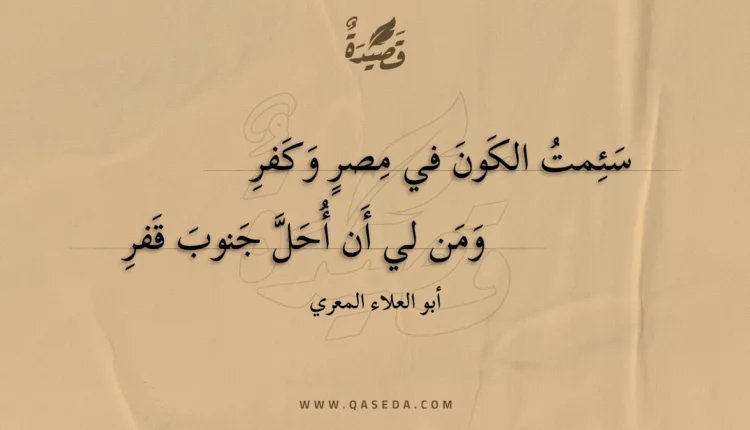 قَصِيدَةٌ
سَئِمتُ الكَونَ في مِصرٍ وَكَفرِ
وَمَن لي أَن أُحَلَّ جَنوبَ قَفرِ
أبو العلاء المعري
WWW.QASEDA.COM